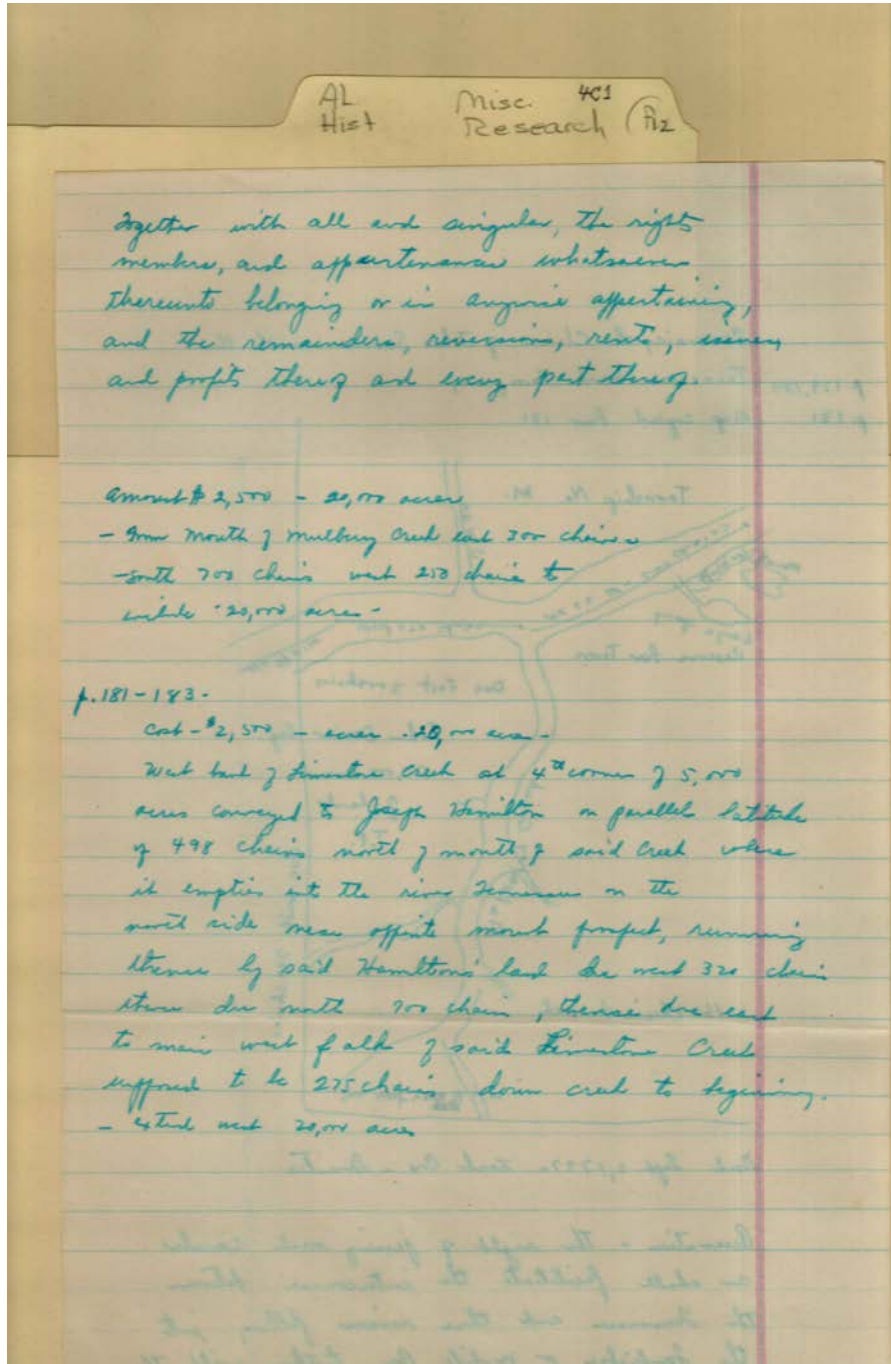 AL Misc. 4C1
Hist Research
Together with all and singular, the rights
members, and appurtenances whatsoever
thereunto belonging or in anywise appertaining,
and the remainders, reversions, rents, issues,
and profits thereof and every part thereof.
amount $2,500 - 20,000 acres
- from mouth of Mulberry Creek east 300 chains
- south 700 chains west 250 chains to
include 20,000 acres -
p. 181-183 -
Cost - $2,500 - acres 20,000 acres -
West bank of Limestone Creek at 4th corner of 5,000
acres conveyed to Joseph Hamilton on parallel latitude
of 498 chains north of mouth of said Creek where
it empties into the river Tennessee on the
north side near opposite mount prospect, running
thence by said Hamilton's land due west 320 chain
thence due north 700 chain, thence due east
to main west of said Limestone Creek
supposed to be 275 chains down creek to beginning.
- extend west 20,000 acres
Township No. M.